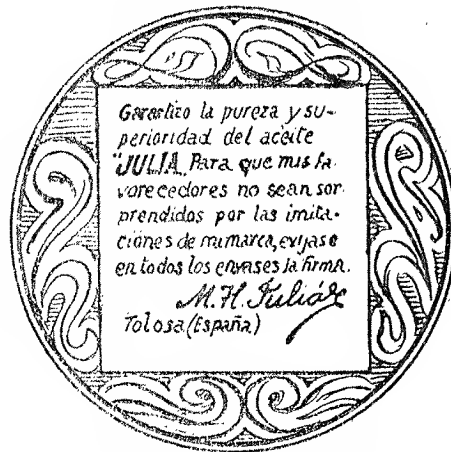 Garantizo la pureza y su-
perioridad del aceite
"JULIA". Para que mis fa-
vorecedores no sean sor-
prendidos por las imita-
ciones de mi marca, exijase
en todos los envases la firma.
M. H. Julián
Tolosa (España)